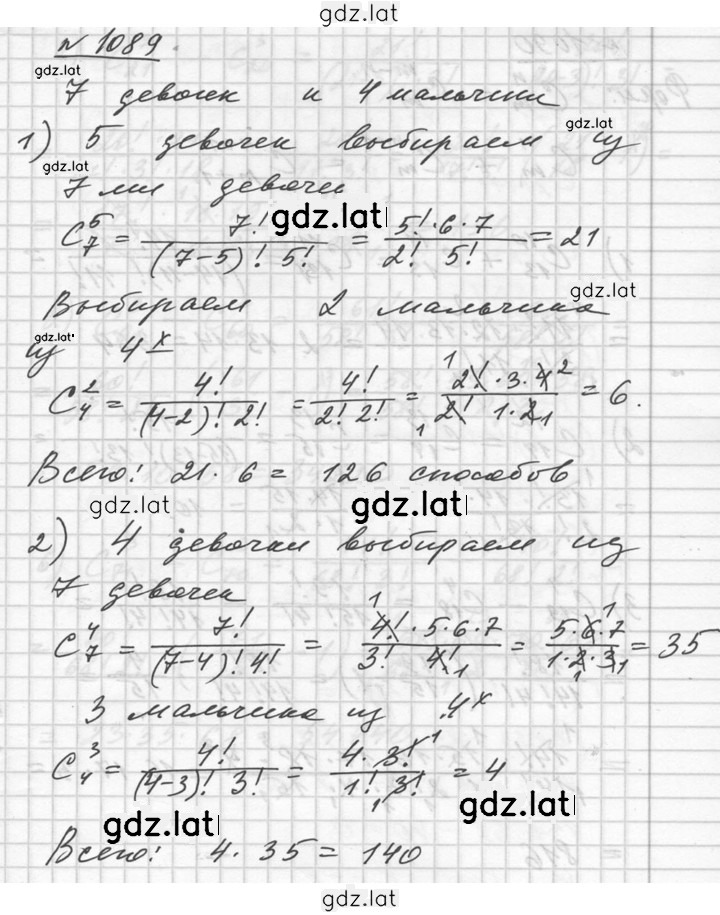 gdz.lat
№ 1089.
gdz.lat
7 девочек и 4 мальчика
1) 5 девочек выбираем из
gdz.lat
gdz.lat
7 ми девочек
C₇⁵ = 7! / (7-5)! 5! = 5!·6·7 / 2! 5! = 21
gdz.lat
Выбираем 2 мальчика
gdz.lat
из 4х
gdz.lat
C₄² = 4! / (4-2)! 2! = 4! / 2! 2! = 2!·3·4 / 2! 1·2 = 6.
Всего: 21·6 = 126 способов
gdz.lat
gdz.lat
2) 4 девочки выбираем из
7 девочек
C₇⁴ = 7! / (7-4)! 4! = 4!·5·6·7 / 3! 4! = 5·6·7 / 1·2·3 = 35
3 мальчика из 4х
C₄³ = 4! / (4-3)! 3! = 4·3! / 1! 3! = 4
gdz.lat
gdz.lat
Всего: 4·35 = 140
gdz.lat